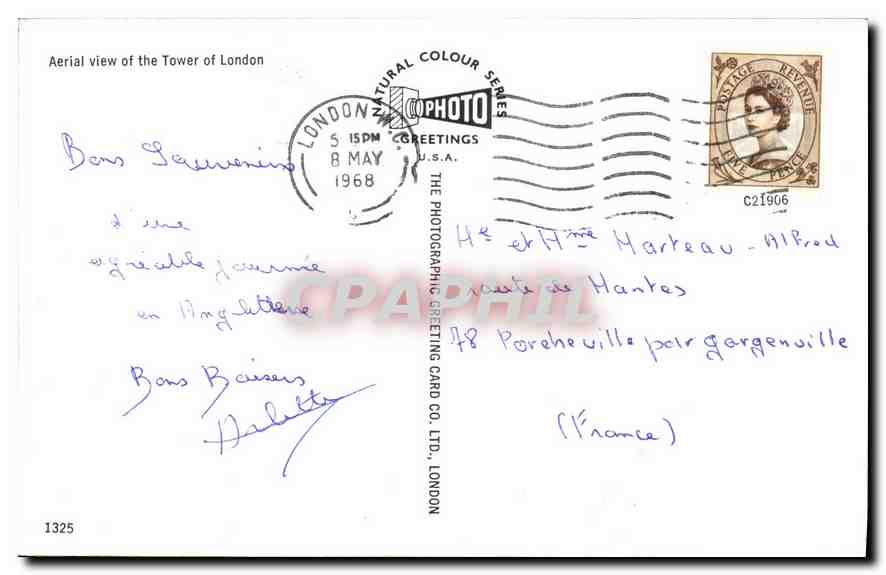 Aerial view of the Tower of London
NATURAL COLOUR SERIES
PHOTO
GREETINGS
U.S.A.
LONDON W.C.
5 15PM
8 MAY
1968
POSTAGE REVENUE
FIVE PENCE
C21906
Bons Souvenirs
d'une
agréable journée
en Angleterre
Bons Baisers
THE PHOTOGRAPHIC GREETING CARD CO. LTD., LONDON
Mr et Mme Marteau - Alfred
route de Mantes
78 Porcheville par gargenville
(France)
CPAPHIL
1325